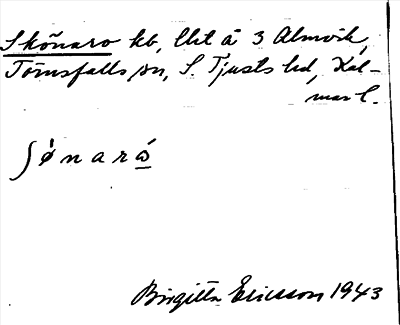 Skönaro kb, lht å 3 Almvik,
Törnsfalls sn, S. Tjusts hd, Kal-
mar l.
ʃö́narå̀
Birgitta Ericsson 1943